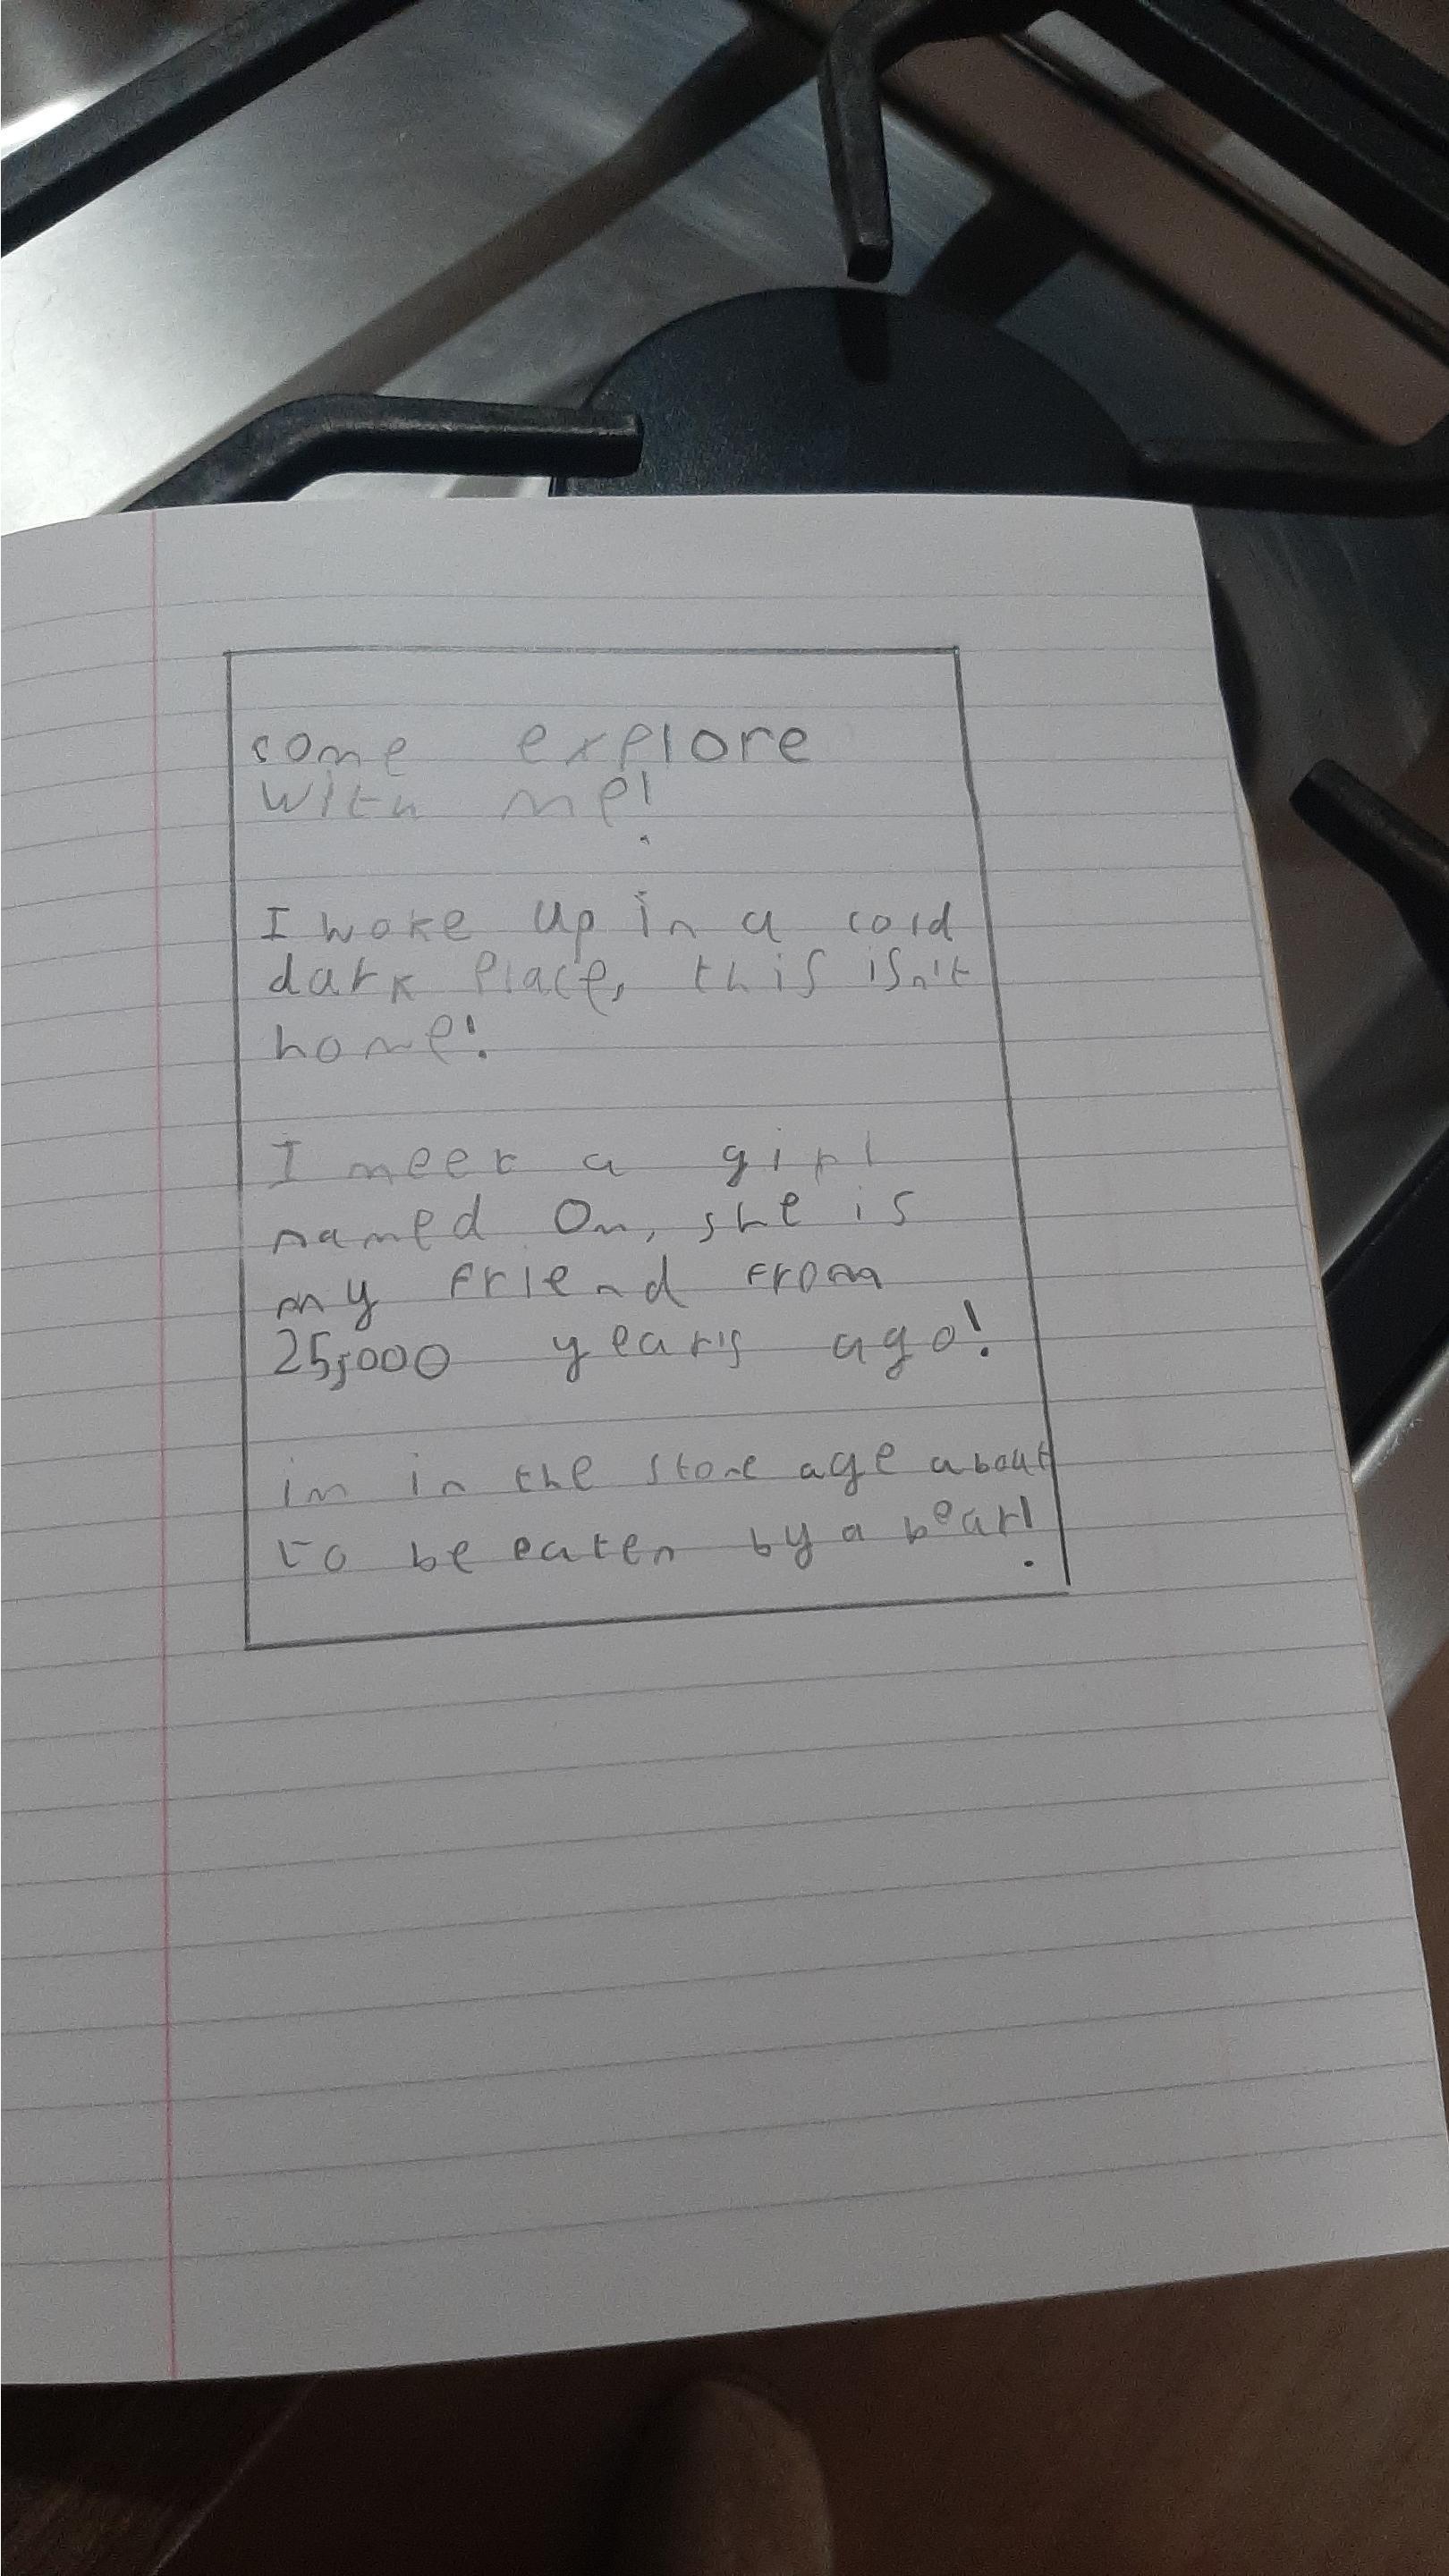 come explore
with me!
I woke up in a cold
dark place, this isn't
home!
I meet a girl
named Om, she is
my friend from
25,000 year's ago!
im in the stone age about
to be eaten by a bear!